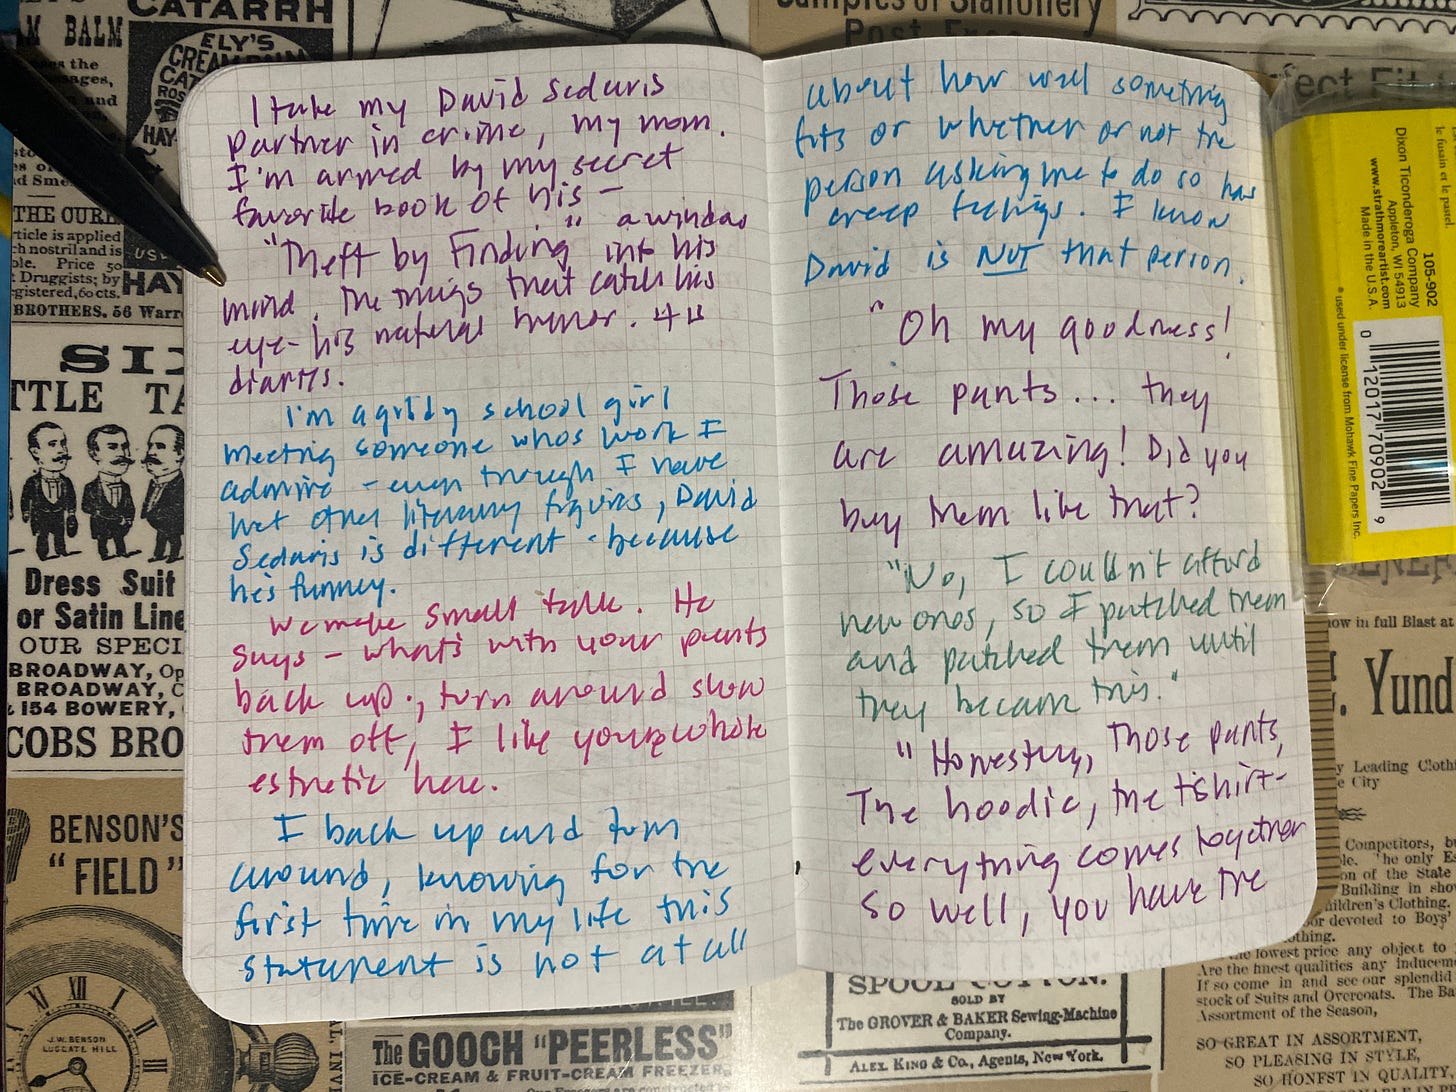 I take my David Sedaris
partner in crime, my mom.
I'm armed by my secret
favorite book of his –
"Theft by Finding" a window
into his
mind. The things that catch his
eye - his natural humor. 
diaries.
I'm a giddy school girl
meeting someone whos work I
admire - even through I have
met other literary figures, David
Sedaris is different - because
he's funney.
We make small talk. He
says – what's with your pants
back up; turn around show
them off, I like your whole
esthetic here.
I back up and turn
around, knowing for the
first time in my life this
statement is not at all
about how well something
fits or whether or not the
person asking me to do so has
creep feelings. I know
David is NOT that person.
"Oh my goodness!
Those pants... they
are amazing! Did you
buy them like that?
"No, I couldn't afford
new ones, so I patched them
and patched them until
they became this."
"Honestly, Those pants,
The hoodie, the tshirt-
everything comes together
so well, you have the
CATARRH
BALM
ELY'S
CREAM BALM
HAY
THE CURE
rticle is applied
nostril and is
Price 50
Druggists; by
gistered, 60 cts.
BROTHERS, 56 Warr
HAY
TTLE
Dress Suit
or Satin Line
OUR SPECI
BROADWAY,
BROADWAY,
154 BOWERY,
COBS BRO
BENSON'S
"FIELD"
J.W. BENSON
LUDGATE HILL
The GOOCH "PEERLESS"
ICE-CREAM & FRUIT-CREAM FREEZER
SPOOL COTTON.
SOLD BY
The GROVER & BAKER Sewing-Machine
Company.
ALEX. KING & Co., Agents, New York.
Samples of Stationery
Post Free
ect Fit
105-902
Dixon Ticonderoga Company
Appleton, WI 54913
www.strathmoreartist.com
Made in the U.S.A.
® used under license from Mohawk Fine Papers Inc.
0 12017 70902 9
le fusain et le pastel.
now in full Blast at
Yund
y Leading Clothi
e City
Competitors, bu
The only Es
on of the State
Building in show
hildren's Clothing.
or devoted to Boys'
othing.
lowest price any object to
Are the finest qualities any Induceme
If so come in and see our splendid
stock of Suits and Overcoats. The Ba
Assortment of the Season,
SO GREAT IN ASSORTMENT,
SO PLEASING IN STYLE,
SO HONEST IN QUALITY